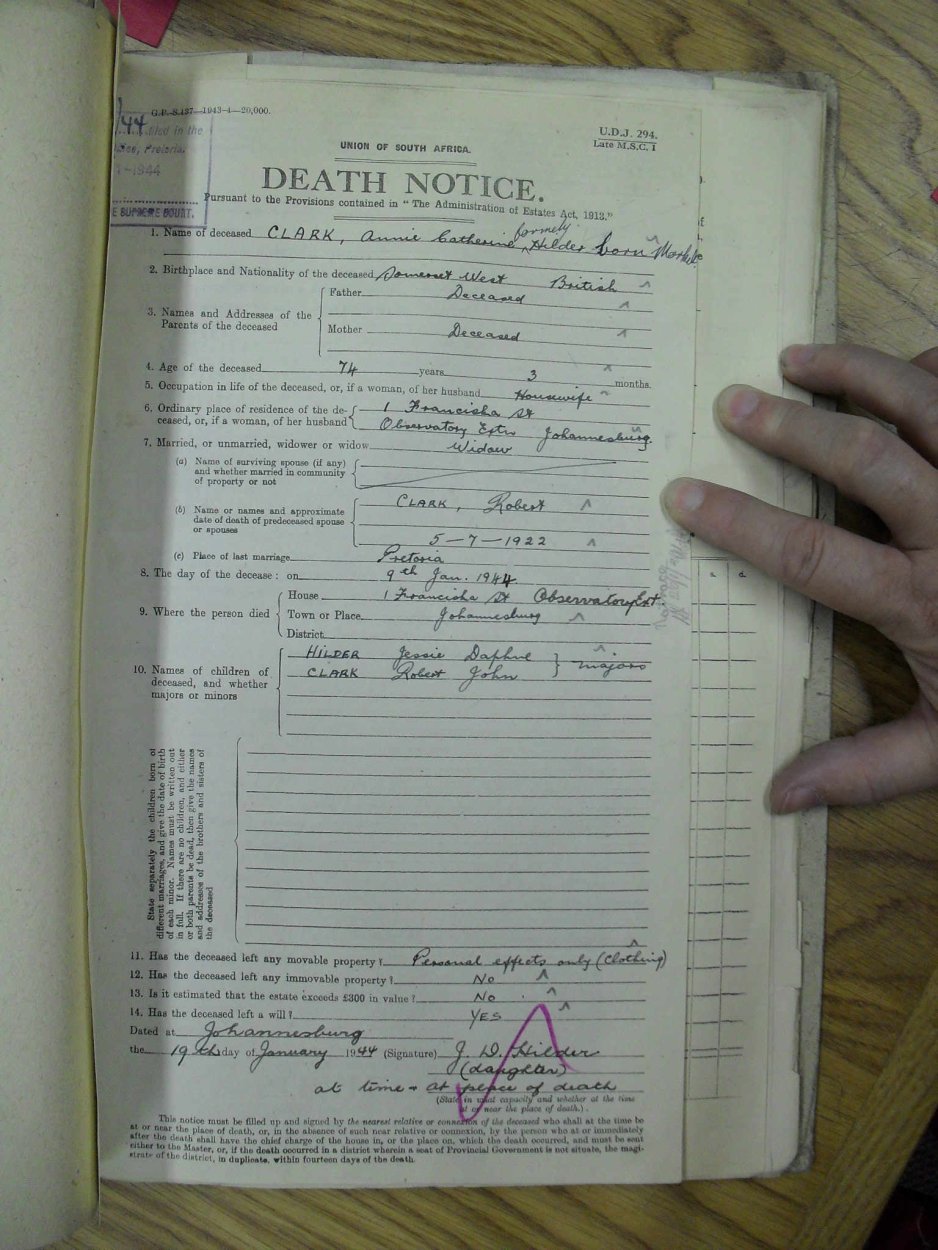 /44
G.P.-S.437-1943-4-20,000.
filed in the
Pretoria.
-1944
E SUPREME COURT.
U.D.J. 294.
Late M.S.C. 1
UNION OF SOUTH AFRICA.
DEATH NOTICE.
Pursuant to the Provisions contained in "The Administration of Estates Act, 1913."
formely
1. Name of deceased CLARK, Annie Catherine, Hilder born
2. Birthplace and Nationality of the deceased Somerset West British
3. Names and Addresses of the Parents of the deceased
Father Deceased
Mother Deceased
4. Age of the deceased 74 years 3 months.
5. Occupation in life of the deceased, or, if a woman, of her husband Housewife
6. Ordinary place of residence of the de-
ceased, or, if a woman, of her husband
1 Francisha St
Observatory Extn Johannesburg
7. Married, or unmarried, widower or widow Widow
(a) Name of surviving spouse (if any)
and whether married in community
of property or not
(b) Name or names and approximate
date of death of predeceased spouse
or spouses
CLARK, Robert
5-7-1922
(c) Place of last marriage Pretoria
8. The day of the decease: on 9th Jan. 1944
9. Where the person died
House 1 Francisha St Observatory Ext.
Town or Place Johannesburg
District
10. Names of children of
deceased, and whether
majors or minors
HILDER Jessie Daphne } majors
CLARK Robert John
State separately the children born of
different marriages, and give the date of birth
of each minor. Names must be written out
in full. If there are no children, and either
or both parents be dead, then give the names
and addresses of the brothers and sisters of
the deceased
11. Has the deceased left any movable property? Personal effects only (Clothing)
12. Has the deceased left any immovable property? No
13. Is it estimated that the estate exceeds £300 in value? No
14. Has the deceased left a will? YES
Dated at Johannesburg
the 19th day of January 1944 (Signature) J. D. Hilder
(daughter)
at time + at place of death
(State in what capacity and whether at the time
at or near the place of death.)
This notice must be filled up and signed by the nearest relative or connexion of the deceased who shall at the time be
at or near the place of death, or, in the absence of such near relative or connexion, by the person who at or immediately
after the death shall have the chief charge of the house in, or the place on, which the death occurred, and must be sent
either to the Master, or, if the death occurred in a district wherein a seat of Provincial Government is not situate, the magi-
strate of the district, in duplicate, within fourteen days of the death.